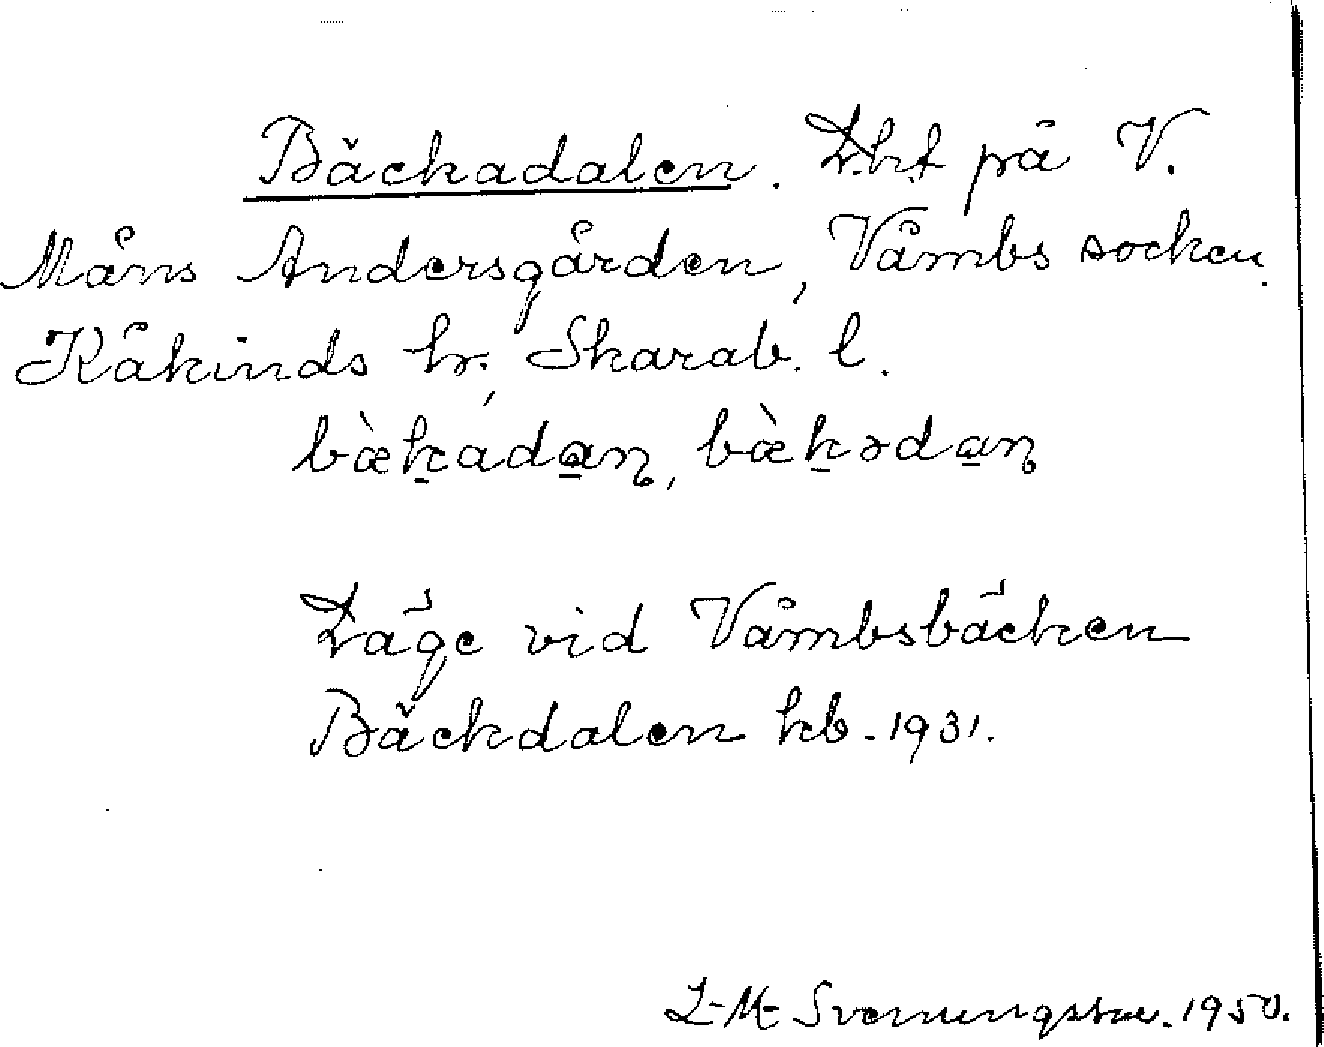 Bäckadalen. Lht på V.
Måns Andersgården, Våmbs socken.
Kåkinds hr., Skarab. l.
bæ̀k̠ada̠ɳ, bæ̀k̠əda̠ɳ
Läge vid Våmbsbäcken
Bäckdalen kb. 1931.
L-M- Svenungsson. 1950.